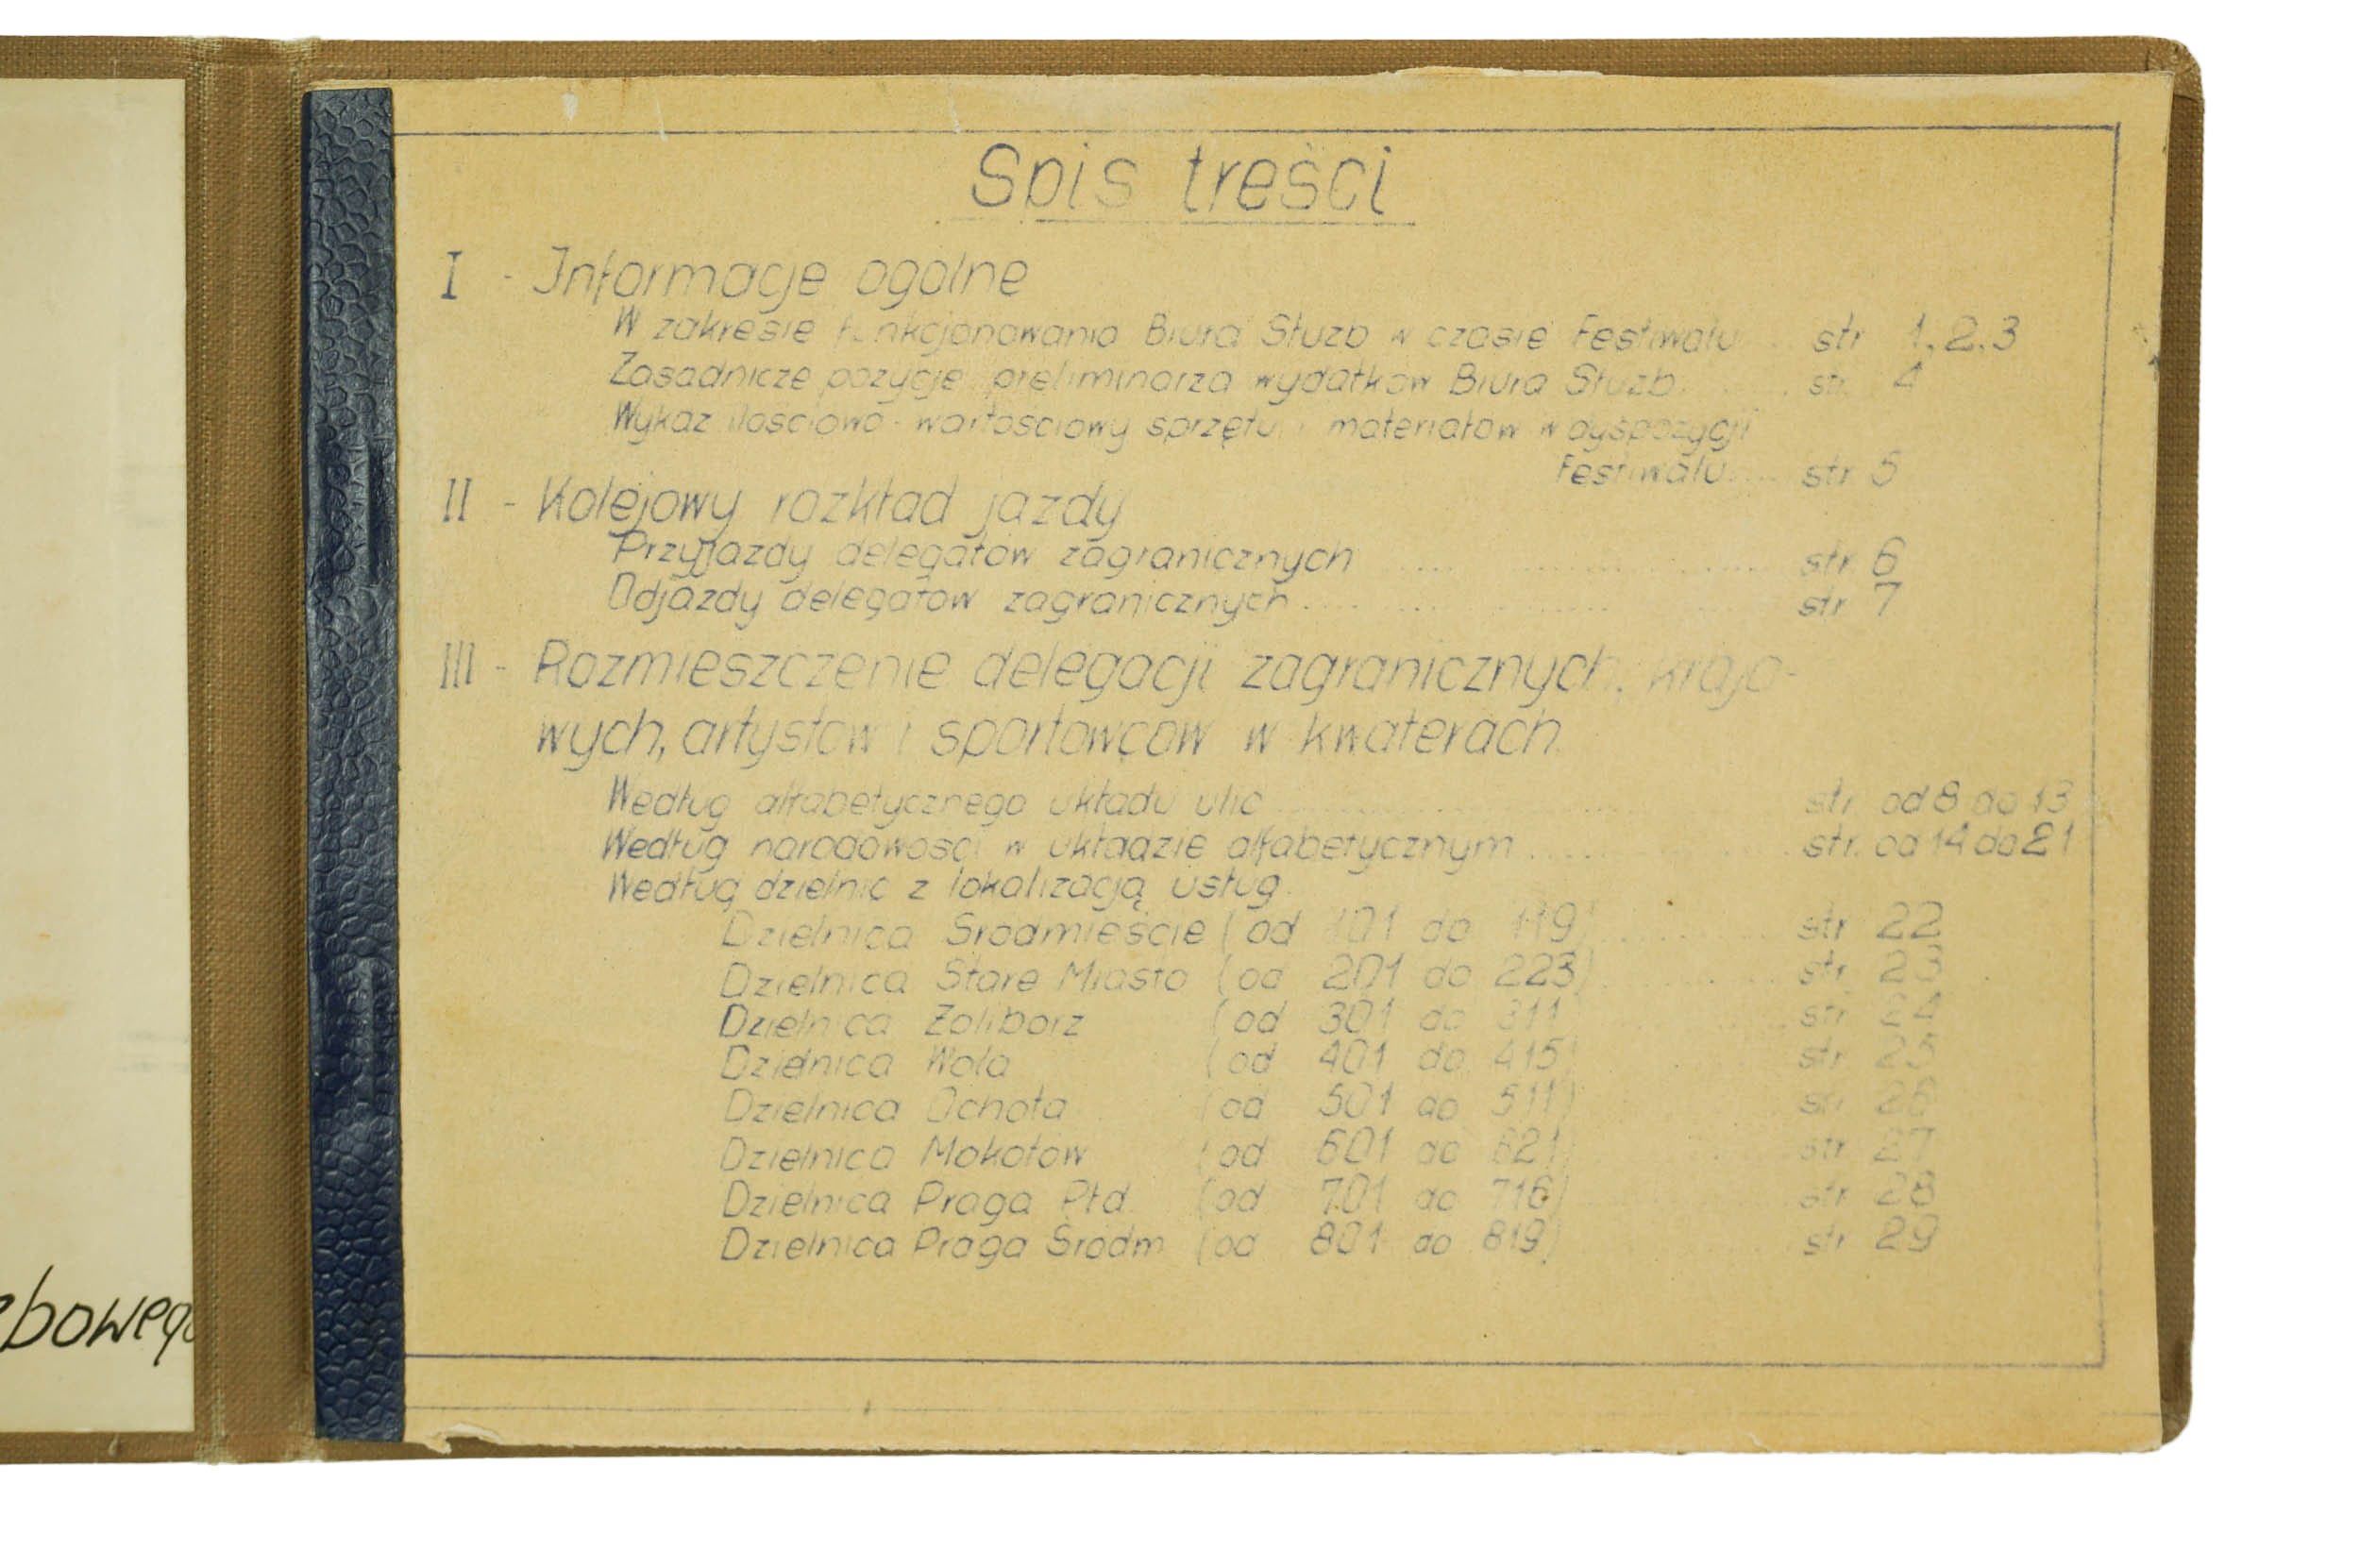 Spis treści
I - Informacje ogólne
W zakresie funkcjonowania Biura Służb w czasie Festiwalu ... str 1.2.3
Zasadnicze pozycje preliminarza wydatków Biura Służb ... str. 4
Wykaz ilościowo-wartościowy sprzętu i materiałów w dyspozycji
Festiwalu .... str 5
II - Kolejowy rozkład jazdy
Przyjazdy delegatów zagranicznych ... str. 6
Odjazdy delegatów zagranicznych ... str 7
III - Rozmieszczenie delegacji zagranicznych, krajo-
wych, artystów i sportowców w kwaterach
Według alfabetycznego układu ulic ... str. od 8 do 13
Według narodowości w układzie alfabetycznym ... str. od 14 do 21
Według dzielnic z lokalizacją usług.
Dzielnica Śródmieście (od 101 do 119) ... str 22
Dzielnica Stare Miasto (od 201 do 223) ... str 23
Dzielnica Żoliborz (od 301 do 311 ... str 24
Dzielnica Wola (od 401 do 415) str 25
Dzielnica Ochota (od 501 do 511) str 26
Dzielnica Mokotów (od 601 do 621) str 27
Dzielnica Praga Płd. (od 701 do 716) str 28
Dzielnica Praga Śródm (od 801 do 819) str 29
zbowego